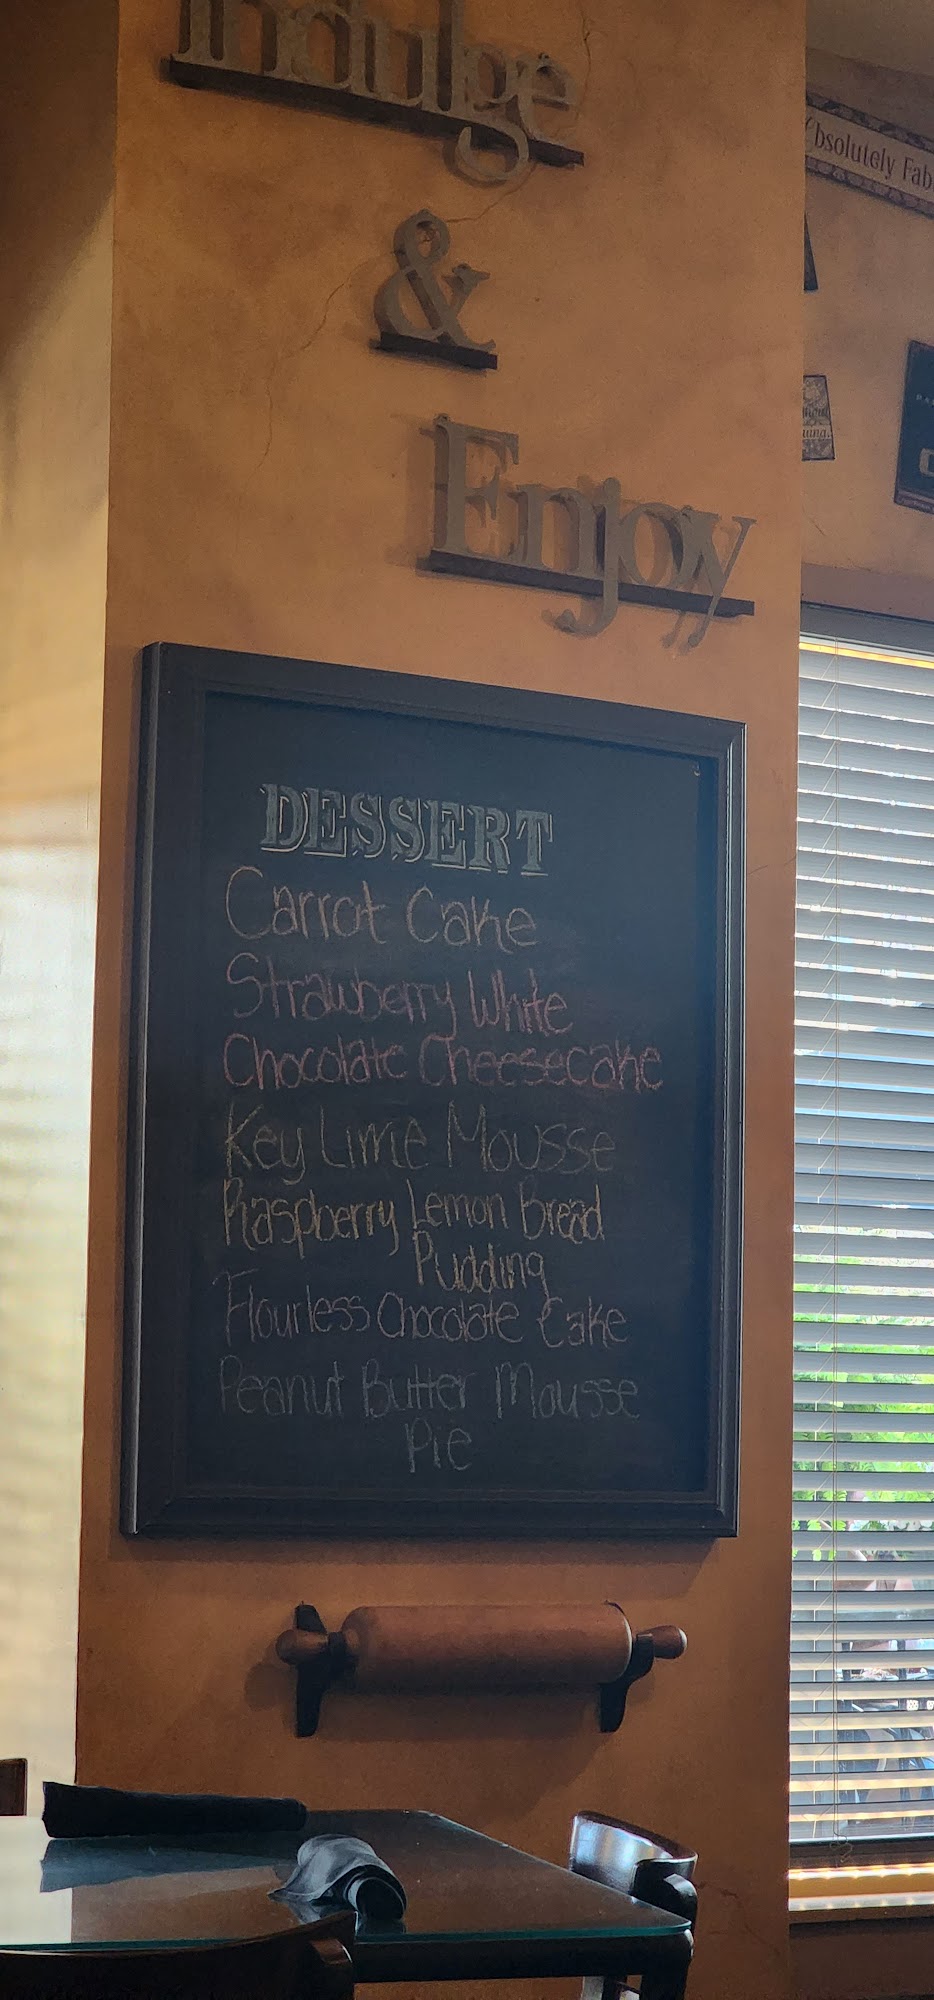 Indulge
&
Enjoy
Absolutely Fab
DESSERT
Carrot Cake
Strawberry White
Chocolate Cheesecake
Key Lime Mousse
Raspberry Lemon Bread
Pudding
Flourless Chocolate Cake
Peanut Butter Mousse
Pie